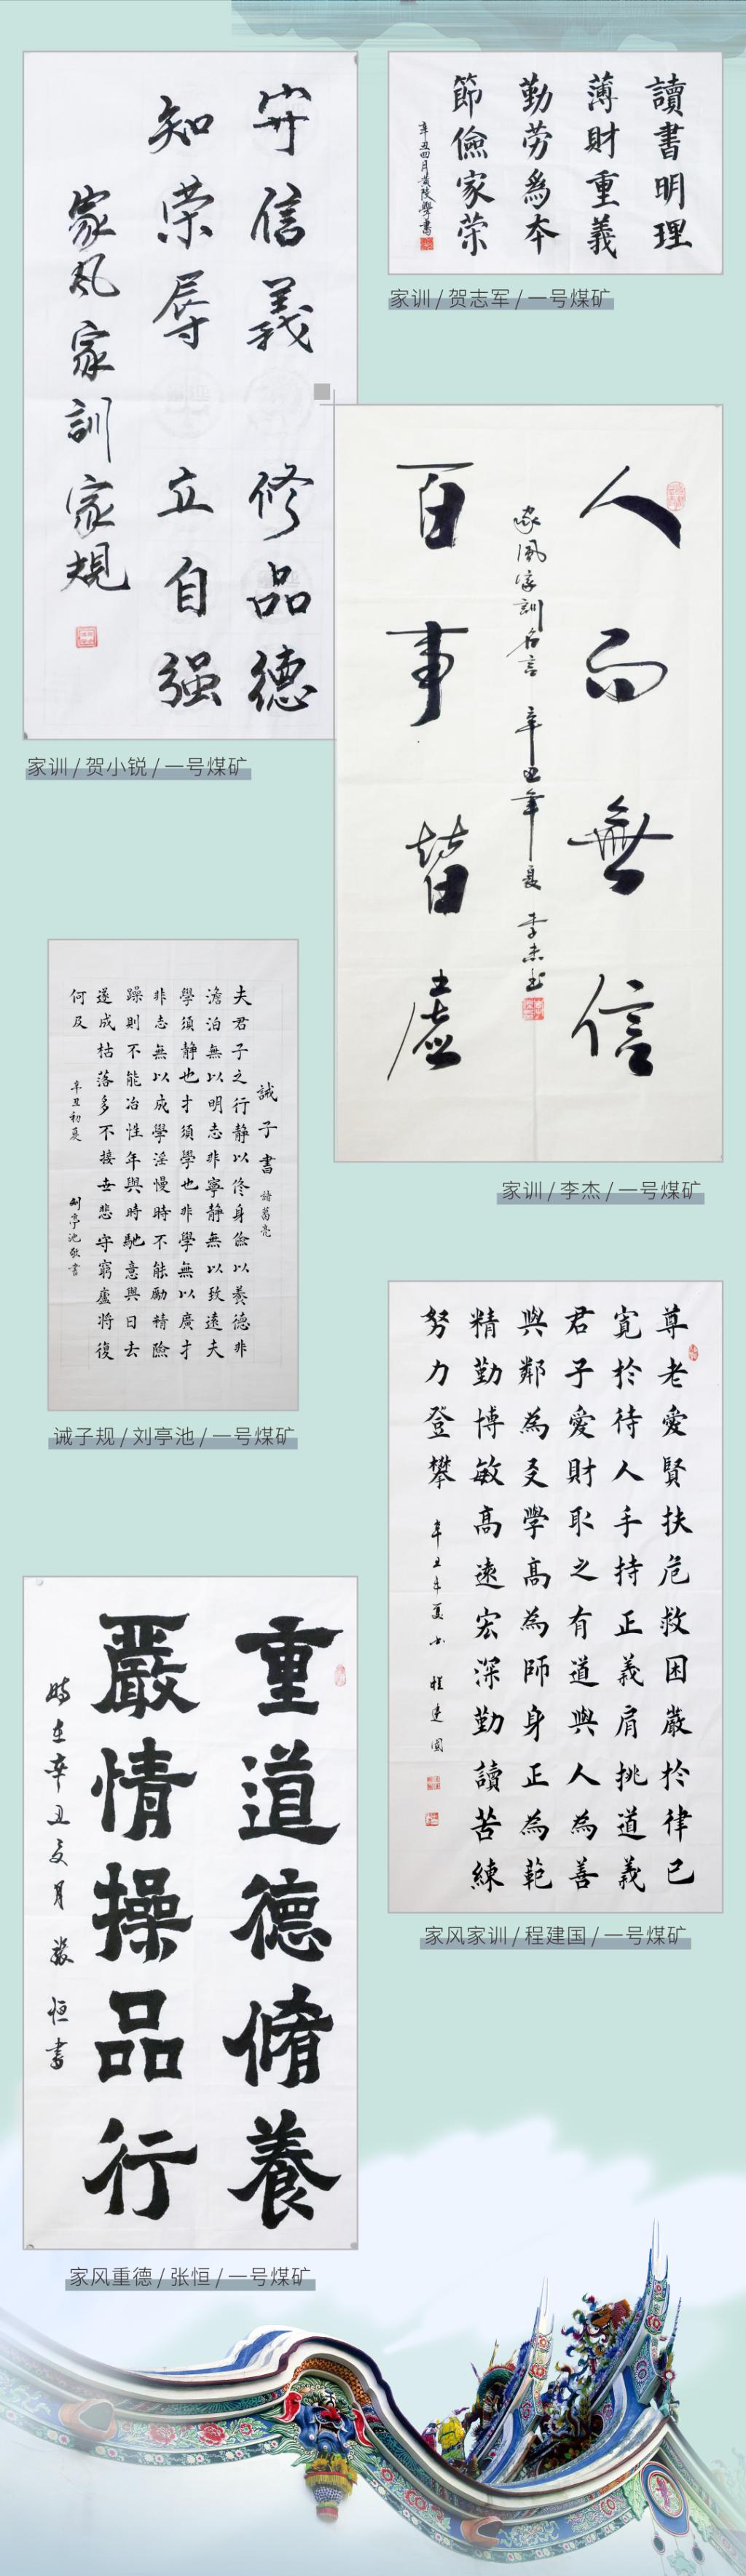 守信義 修品德
知荣辱 立自强
家风家訓家規
家训/贺小锐/一号煤矿
讀書明理
薄財重義
勤劳為本
節儉家荣
辛丑四月黄陵學書
家训/贺志军/一号煤矿
人而無信
家風家訓名言 辛丑年夏 李杰书
百事皆虚
家训/李杰/一号煤矿
誡子書 諸葛亮
夫君子之行静以修身儉以養德非
澹泊無以明志非寧静無以致遠夫
學須静也才須學也非學無以廣才
非志無以成學淫慢時不能勵精險
躁則不能冶性年與時馳意與日去
遂成枯落多不接世悲守窮廬將復
何及 辛丑初夏 刘亭池敬書
诫子规/刘亭池/一号煤矿
尊老愛賢扶危救困嚴於律己
寬於待人手持正義肩挑道義
君子愛財取之有道與人為善
與鄰為友學高為師身正為範
精勤博敏高遠宏深勤讀苦練
努力登攀 辛丑年夏书 程建國
家风家训/程建国/一号煤矿
重道德脩養
嚴情操品行
時在辛丑夏月 張恒書
家风重德/张恒/一号煤矿